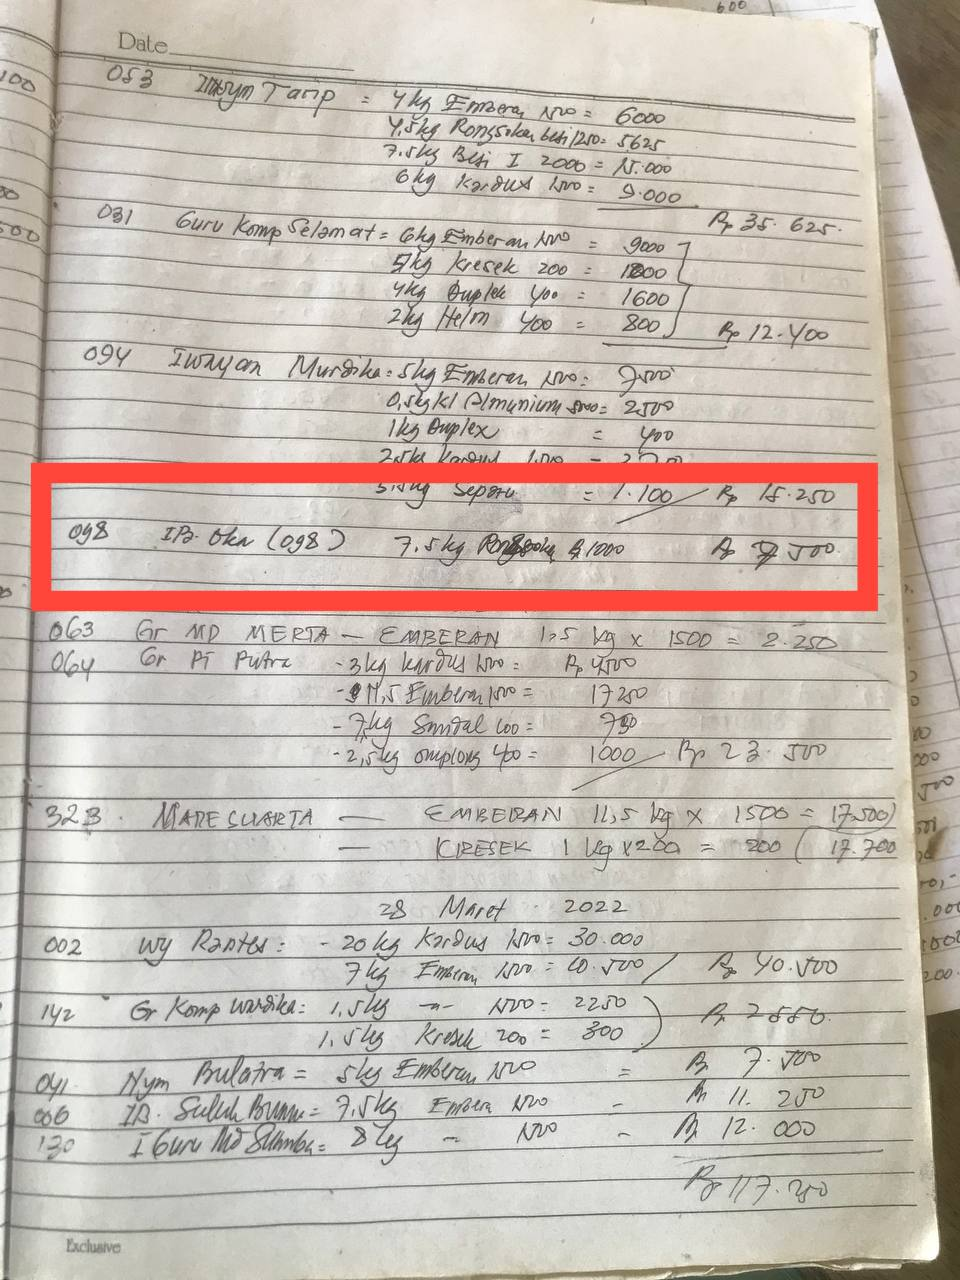 600
Date
053 INNym Tarip = 4kg Emberan 1500 = 6000
4,5kg Rongsokan besi 1250 = 5625
7.5kg Besi I 2000 = 15.000
6kg Kardus 1500 = 9.000
Rp 35.625.
031 Guru Komp Selamat = 6kg Emberan 1500 = 9000
5kg Kresek 200 = 1000
4kg Duplek 400 = 1600
2kg Helm 400 = 800 Rp 12.400
094 IWayan Murdika = 5kg Emberan 1500 = 7500
0,5kg Kl Almunium 5000 = 2500
1kg Duplex = 400
2,5kg Kardus 1.500 =
Sepatu = 1.100 Rp 15.250
098 IB. Oka (098) 7.5kg Rongsokan Rp 1000 Rp 7.500
063 Gr MD MERTA — EMBERAN 1,5 kg x 1500 = 2.250
064 Gr PT Putra - 3kg kardus 1500 = Rp 4500
- 11,5 Emberan 1500 = 17250
- 7kg Sandal 100 = 700
- 2,5kg omplong 400 = 1000 Rp 23.500
323. MADE SUARTA — EMBERAN 11,5 kg x 1500 = 17.500
— KRESEK 1 kg x 200 = 200 17.700
28 Maret 2022
002 Wy Rantes = - 20kg Kardus 1500 = 30.000
7kg Emberan 1500 = 10.500 / Rp 40.500
142 Gr Komp Wardika = 1,5kg —"— 1500 = 2250
1,5kg Kresek 200 = 300 Rp 2550.
041 Nym Bulatra = 5kg Emberan 1500 = Rp 7.500
006 IB. Suluh = 7,5kg Embera 1500 - Rp 11.250
130 I Guru Md = 8kg - 1500 - Rp 12.000
Rp 117.250
Exclusive